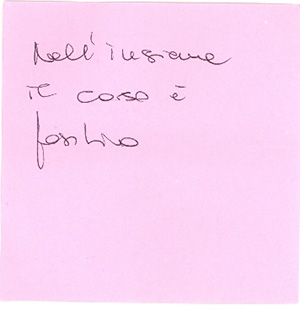 Nell'insieme
il corso è
positivo